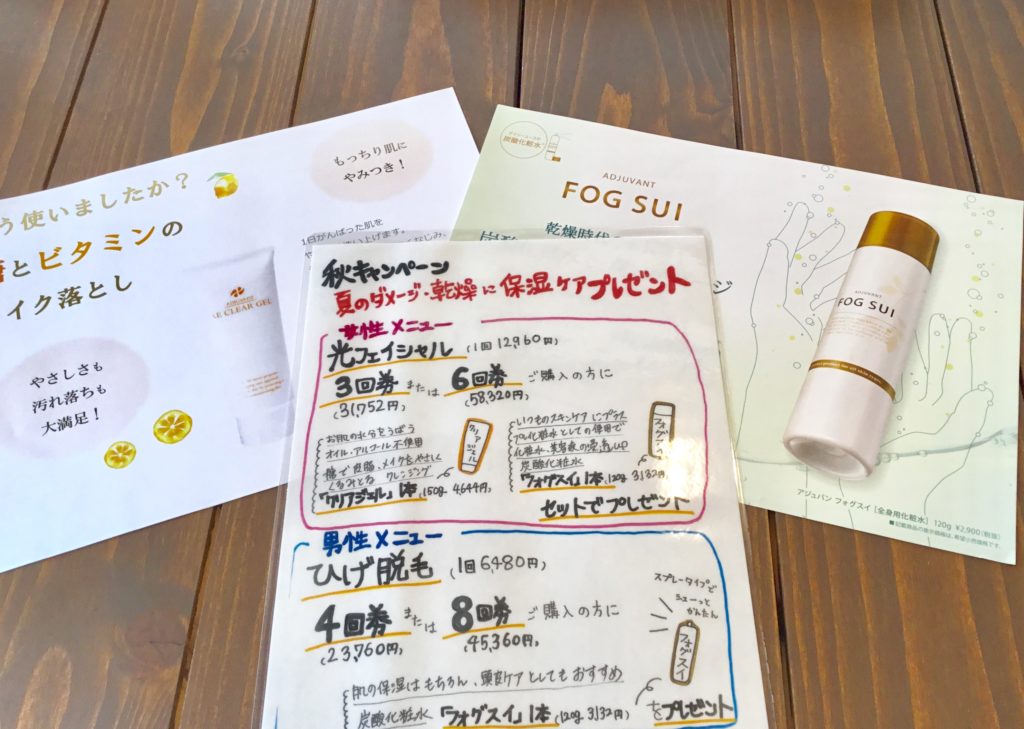 う使いましたか？
とビタミンの
イク落とし
もっちり肌に
やみつき！
1日がんばった肌を
やさしさも
汚れ落ちも
大満足！
ADJUVANT
RE CLEAR GEL
炭酸化粧水
ADJUVANT
FOG SUI
乾燥時代
ADJUVANT
FOG SUI
アジュバン フォグスイ［全身用化粧水］ 120g ¥2,900（税抜）
■記載商品の表示価格は、希望小売価格です。
秋キャンペーン
夏のダメージ・乾燥に保湿ケアプレゼント
女性メニュー
光フェイシャル (1回12,960円)
3回券 または 6回券 ご購入の方に
(31,752円) (58,320円)
お肌の水分をうばう
オイル・アルコール不使用
糖で皮脂、メイクをやさしく
くるみとる クレンジング
「クリアジェル」1本 (150g 4644円)
クリアジェル
いつものスキンケアにプラス
プレ化粧水としての使用で
化粧水、美容液の浸透UP
炭酸化粧水
「フォグスイ」1本 (120g 3,132円)
フォグスイ
セットでプレゼント
男性メニュー
ひげ脱毛 (1回6,480円)
4回券 または 8回券 ご購入の方に
(23,760円) (45,360円)
スプレータイプで
シューっと
かんたん
フォグスイ
肌の保湿はもちろん、頭皮ケアとしてもおすすめ
炭酸化粧水 「フォグスイ」1本 (120g 3,132円) をプレゼント